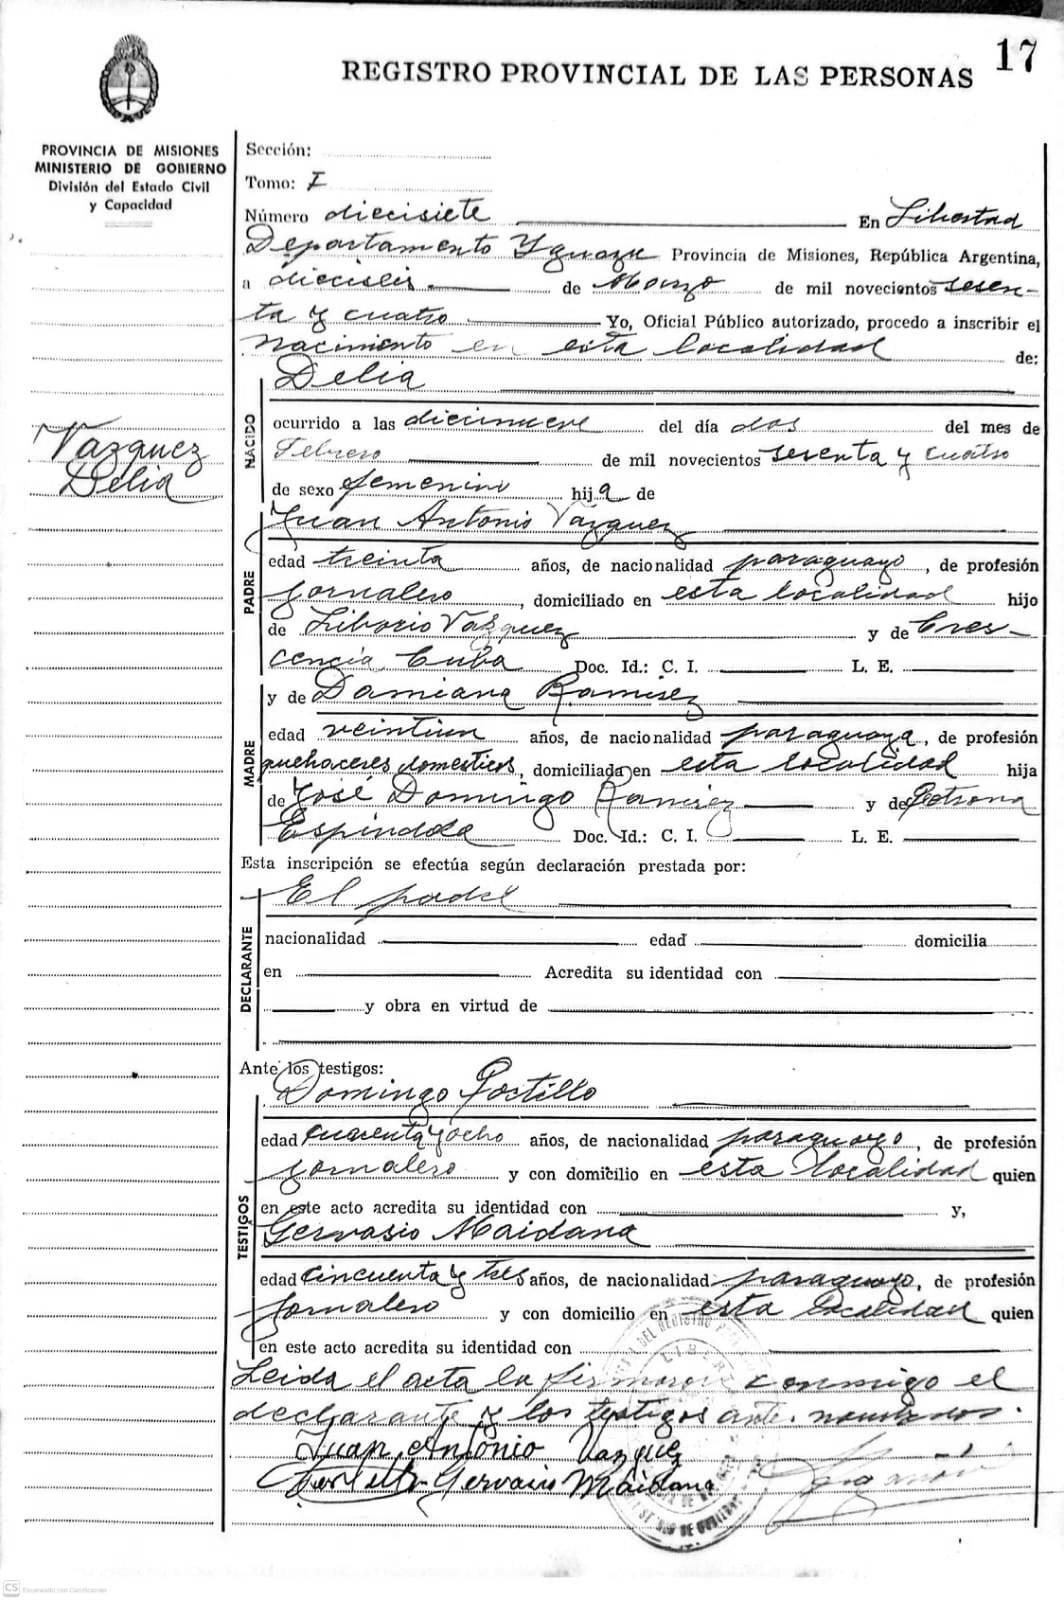 17
REGISTRO PROVINCIAL DE LAS PERSONAS
PROVINCIA DE MISIONES
MINISTERIO DE GOBIERNO
División del Estado Civil
y Capacidad
Sección:
Tomo: I
Número diecisiete En Libertad
Departamento Yguazu Provincia de Misiones, República Argentina,
a dieciseis de Marzo de mil novecientos sesen-
ta y cuatro Yo, Oficial Público autorizado, procedo a inscribir el
nacimiento en esta localidad de:
Delia
Vazquez
Delia
NACIDO
ocurrido a las diecinueve del día dos del mes de
Febrero de mil novecientos sesenta y cuatro
de sexo femenino hija de
Juan Antonio Vazquez
PADRE
edad treinta años, de nacionalidad paraguayo, de profesión
jornalero, domiciliado en esta localidad hijo
de Liborio Vazquez y de Cres-
cencia Cuba Doc. Id.: C. I. L. E.
y de Damiana Ramirez
MADRE
edad veintiun años, de nacionalidad paraguaya, de profesión
quehaceres domesticos, domiciliada en esta localidad hija
de José Domingo Ramirez y de Petrona
Espindola Doc. Id.: C. I. L. E.
Esta inscripción se efectúa según declaración prestada por:
El padre
DECLARANTE
nacionalidad edad domicilia
en Acredita su identidad con
y obra en virtud de
Ante los testigos:
Domingo Portillo
TESTIGOS
edad cuarenta y ocho años, de nacionalidad paraguayo, de profesión
jornalero y con domicilio en esta localidad quien
en este acto acredita su identidad con y,
Gervasio Maidana
edad cincuenta y tres años, de nacionalidad paraguayo, de profesión
jornalero y con domicilio en esta localidad quien
en este acto acredita su identidad con
Leida el acta la firmaron conmigo el
declarante y los testigos ante nombrados.
Juan Antonio Vazquez
Portillo Gervasio Maidana
CS Escaneado con CamScanner